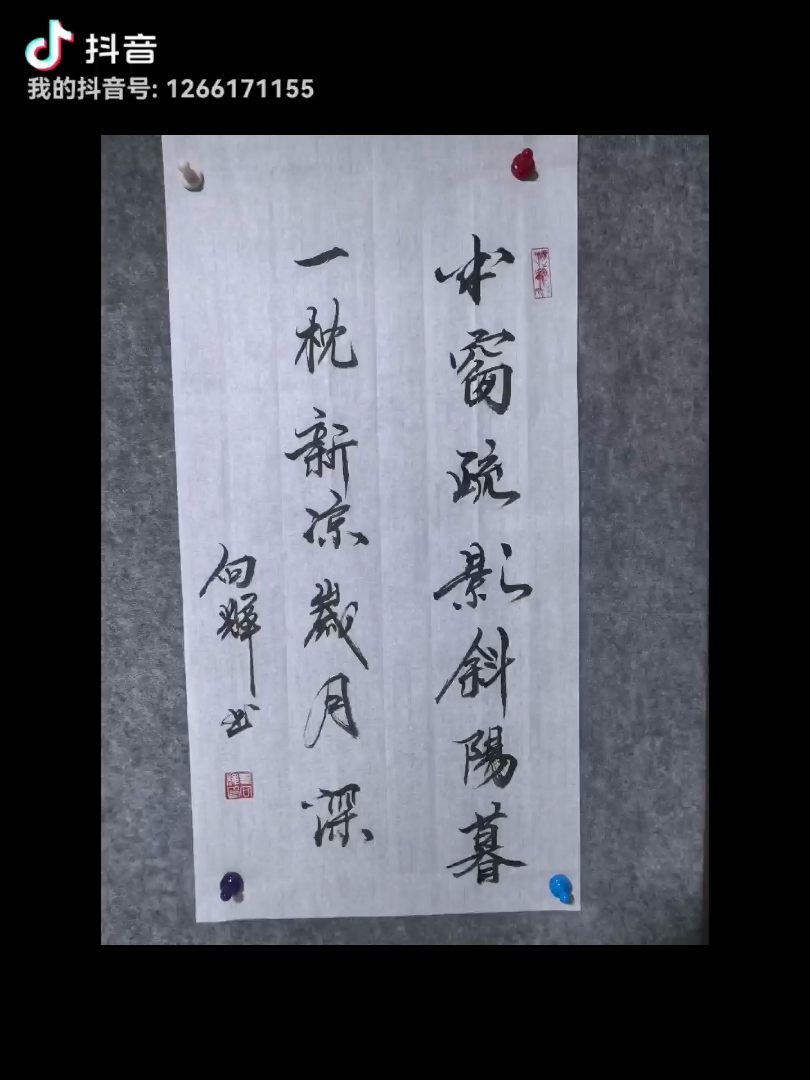 抖音
我的抖音号: 1266171155
半窗疏影斜陽暮
一枕新凉歲月深
向輝书